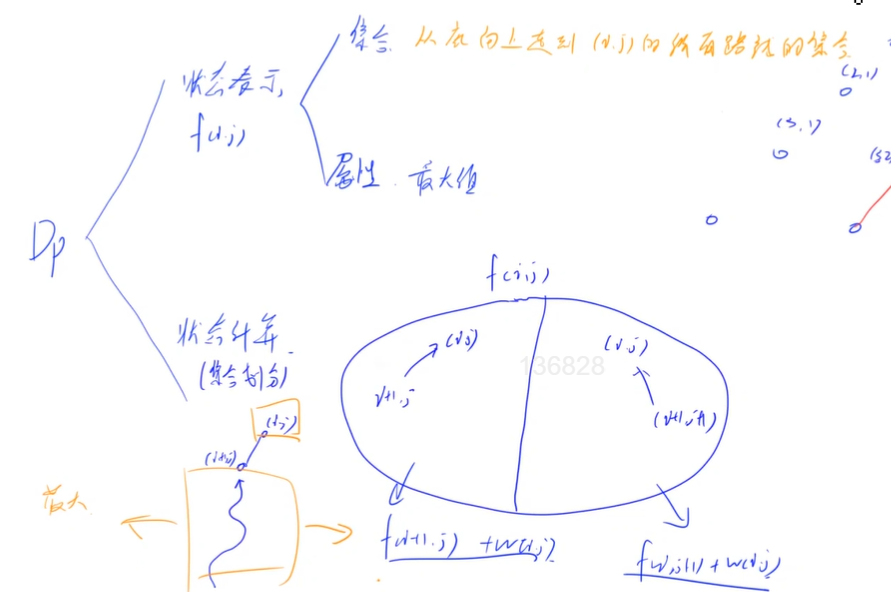 集合. 从底向上走到(i,j)的所有路径的集合
(2,1)
(3,1)
状态表示
f(i,j)
属性. 最大值
Dp
f(i,j)
状态计算
(集合划分)
(i,j)
(i,j)
136828
i+1,j
(i+1,j+1)
(i,j)
(i+1,j)
最大
f(i+1,j)+w(i,j)